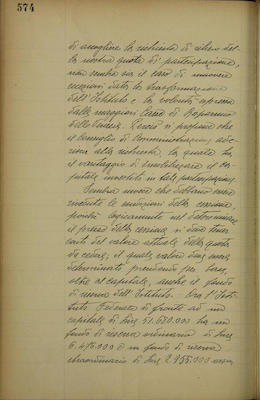 574
di accogliere la richiesta di rilievo del-
la nostra quota di partecipazione,
non sembra sia il caso di muovere
eccezioni data la trasformazione
dell'Istituto e la volontà espressa
dalle maggiori Casse di Risparmio
delle Venezie. Perciò si propone che
il Consiglio di Amministrazione, ade-
risca alla richiesta la quale ha
il vantaggio di smobilizzare il ca-
pitale investito in tale partecipazione.
Sembra invece che debbano essere
le condizioni della cessione
poichè logicamente nel determinare
il prezzo della cessione si deve tener
conto del valore attuale della quota
da cedere; il quale valore deve essere
determinato prendendo per base,
oltre al capitale, anche il fondo
di riserva dell'Istituto. Ora l'Isti-
tuto Federale di fronte ad un
capitale di Lire 51.680.000 ha un
fondo di riserva ordinario di Lire
6.495.000 e un fondo di riserva
straordinario di Lire 2.955.000